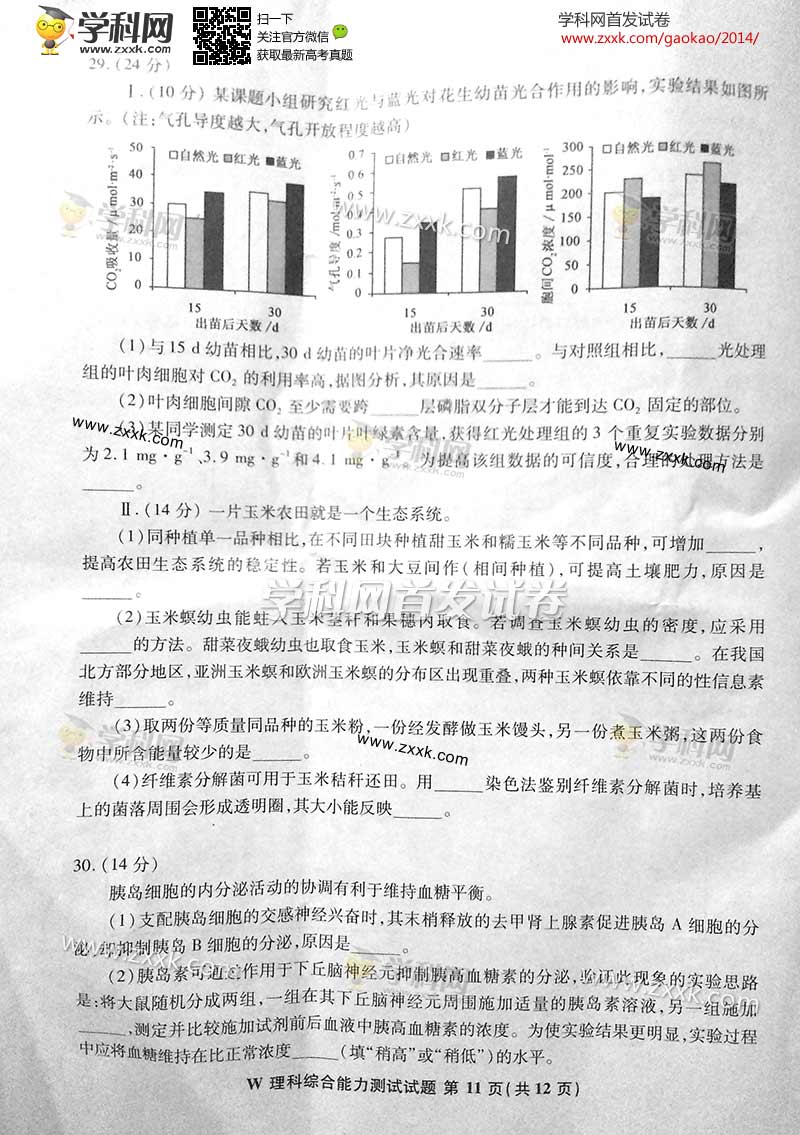 学科网
www.zxxk.com
扫一下
关注官方微信
获取最新高考真题
学科网首发试卷
www.zxxk.com/gaokao/2014/
29.(24分)
Ⅰ.(10分)某课题小组研究红光与蓝光对花生幼苗光合作用的影响,实验结果如图所
示。(注:气孔导度越大,气孔开放程度越高)
50
40
30
20
10
0
CO₂吸收量/μmol·m⁻²·s⁻¹
□自然光 ■红光 ■蓝光
15 30
出苗后天数/d
0.7
0.6
0.5
0.4
0.3
0.2
0.1
0
气孔导度/mol·m⁻²·s⁻¹
□自然光 ■红光 ■蓝光
15 30
出苗后天数/d
300
250
200
150
100
50
0
胞间CO₂浓度/μmol·mol⁻¹
□自然光 ■红光 ■蓝光
15 30
出苗后天数/d
(1)与15 d幼苗相比,30 d幼苗的叶片净光合速率______。与对照组相比,______光处理
组的叶肉细胞对CO₂的利用率高,据图分析,其原因是______。
(2)叶肉细胞间隙CO₂至少需要跨______层磷脂双分子层才能到达CO₂固定的部位。
(3)某同学测定30 d幼苗的叶片叶绿素含量,获得红光处理组的3个重复实验数据分别
为2.1 mg·g⁻¹、3.9 mg·g⁻¹和4.1 mg·g⁻¹。为提高该组数据的可信度,合理的处理方法是
______。
Ⅱ.(14分)一片玉米农田就是一个生态系统。
(1)同种植单一品种相比,在不同田块种植甜玉米和糯玉米等不同品种,可增加______,
提高农田生态系统的稳定性。若玉米和大豆间作(相间种植),可提高土壤肥力,原因是
______。
学科网首发试卷
(2)玉米螟幼虫能蛀入玉米茎秆和果穗内取食。若调查玉米螟幼虫的密度,应采用
______的方法。甜菜夜蛾幼虫也取食玉米,玉米螟和甜菜夜蛾的种间关系是______。在我国
北方部分地区,亚洲玉米螟和欧洲玉米螟的分布区出现重叠,两种玉米螟依靠不同的性信息素
维持______。
(3)取两份等质量同品种的玉米粉,一份经发酵做玉米馒头,另一份煮玉米粥,这两份食
物中所含能量较少的是______。
(4)纤维素分解菌可用于玉米秸秆还田。用______染色法鉴别纤维素分解菌时,培养基
上的菌落周围会形成透明圈,其大小能反映______。
30.(14分)
胰岛细胞的内分泌活动的协调有利于维持血糖平衡。
(1)支配胰岛细胞的交感神经兴奋时,其末梢释放的去甲肾上腺素促进胰岛A细胞的分
泌,却抑制胰岛B细胞的分泌,原因是______。
(2)胰岛素可通过作用于下丘脑神经元抑制胰高血糖素的分泌,验证此现象的实验思路
是:将大鼠随机分成两组,一组在其下丘脑神经元周围施加适量的胰岛素溶液,另一组施加
______,测定并比较施加试剂前后血液中胰高血糖素的浓度。为使实验结果更明显,实验过程
中应将血糖维持在比正常浓度______(填“稍高”或“稍低”)的水平。
W 理科综合能力测试试题 第11页(共12页)